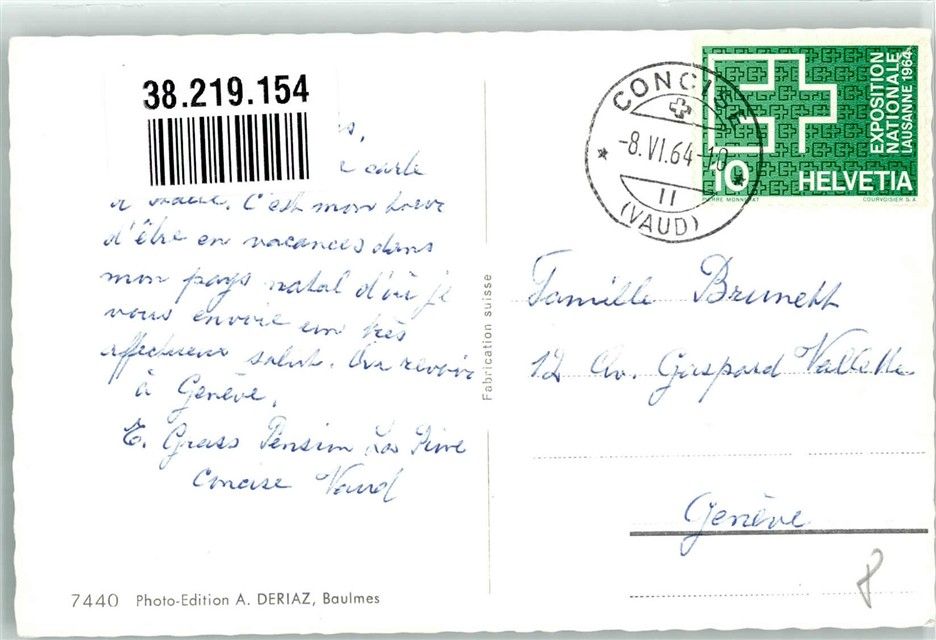 38.219.154
carte
C'est mon
d'être en vacances dans
mon pays natal d'où je
vous envoie un très
affectueux salut. Au revoir
à Genève.
E. Grass Pension La
Concise Vaud
7440 Photo-Edition A. DERIAZ, Baulmes
Fabrication suisse
CONCISE
-8.VI.64-10
11
(VAUD)
EXPOSITION
NATIONALE
LAUSANNE 1964
10 HELVETIA
PIERRE MONNERAT COURVOISIER S.A.
Famille Brunett
12 Av. Gaspard Vallette
Genève